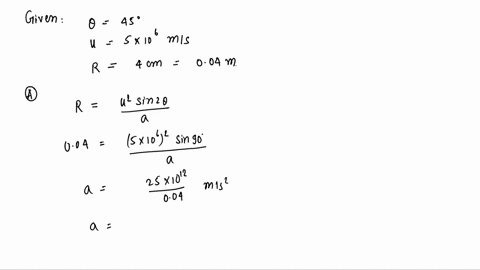 Given: θ = 45°
u = 5×10⁶ m/s
R = 4 cm = 0.04 m
Ⓐ R = u² sin2θ / a
0.04 = (5×10⁶)² sin90° / a
a = 25×10¹² / 0.04 m/s²
a =